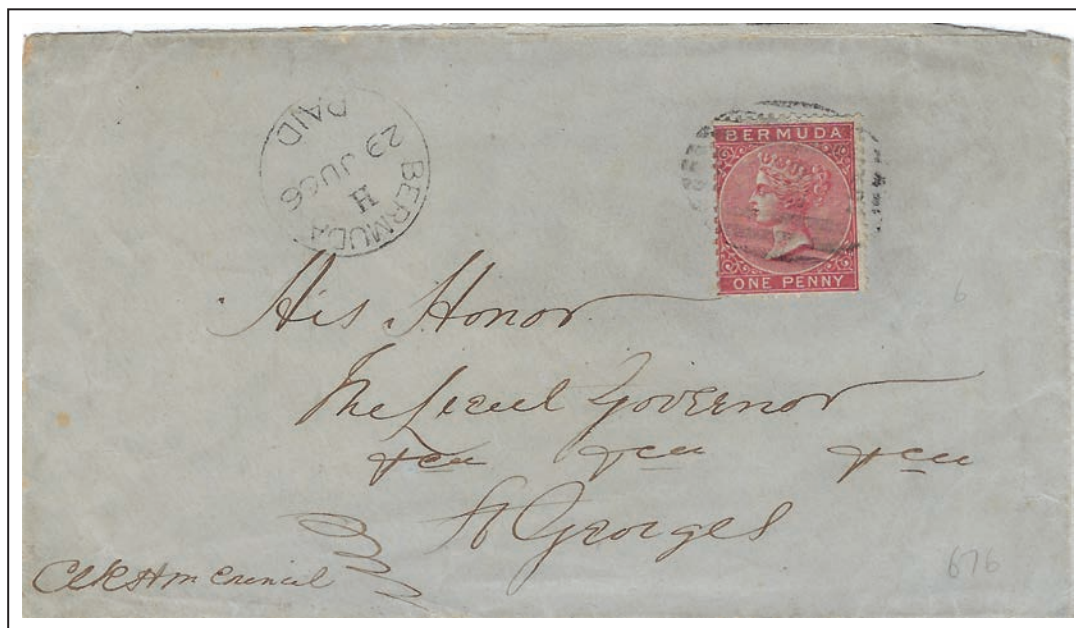 PAID
29 JU 66
H
BERMUDA
BERMUDA
ONE PENNY
6
His Honor
The Lieut Governor
&ca &ca &ca
St Georges
Clk H M Council
676